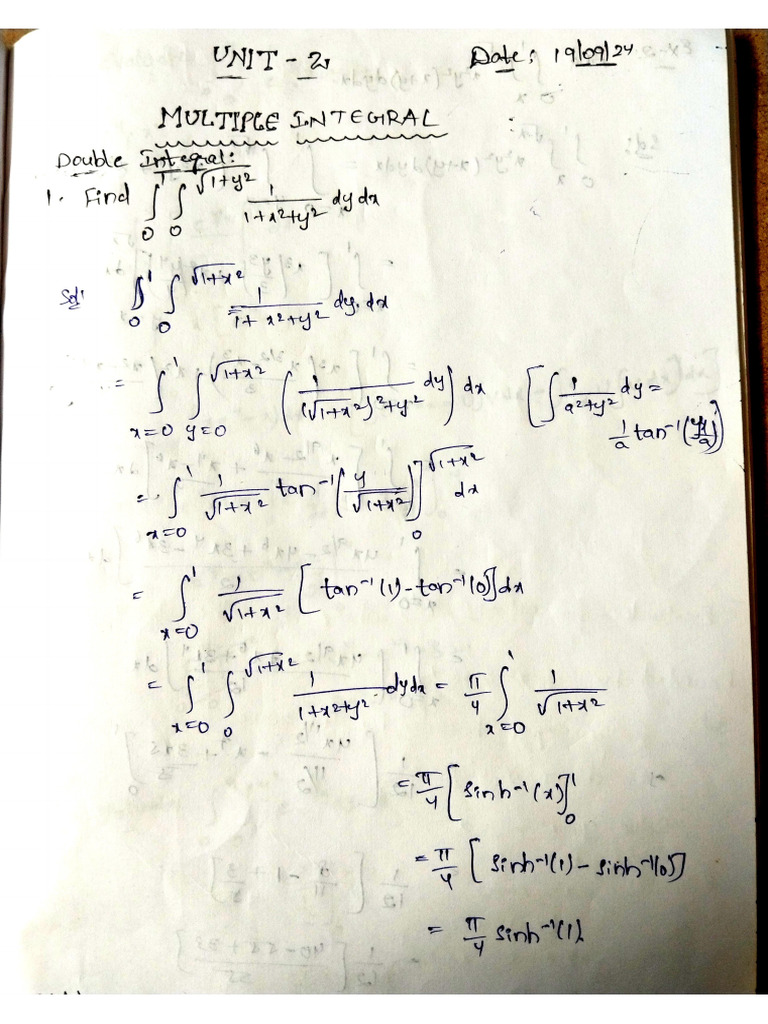 UNIT - 2, Date: 19/09/24
MULTIPLE INTEGRAL
Double Integral:
1. Find ∫₀¹ ∫₀^√(1+y²) 1/(1+x²+y²) dy dx
Sol: ∫₀¹ ∫₀^√(1+x²) 1/(1+x²+y²) dy. dx
= ∫_{x=0}^1 ∫_{y=0}^√(1+x²) (1/((√(1+x²))²+y²) dy) dx [∫ 1/(a²+y²) dy = 1/a tan⁻¹(y/a)]
= ∫_{x=0}^1 1/√(1+x²) tan⁻¹(y/√(1+x²))]₀^√(1+x²) dx
= ∫_{x=0}^1 1/√(1+x²) [tan⁻¹(1) - tan⁻¹(0)] dx
= ∫_{x=0}^1 ∫₀^√(1+x²) 1/(1+x²+y²) dy dx = π/4 ∫_{x=0}^1 1/√(1+x²)
= π/4 [sinh⁻¹(x)]₀¹
= π/4 [sinh⁻¹(1) - sinh⁻¹(0)]
= π/4 sinh⁻¹(1).